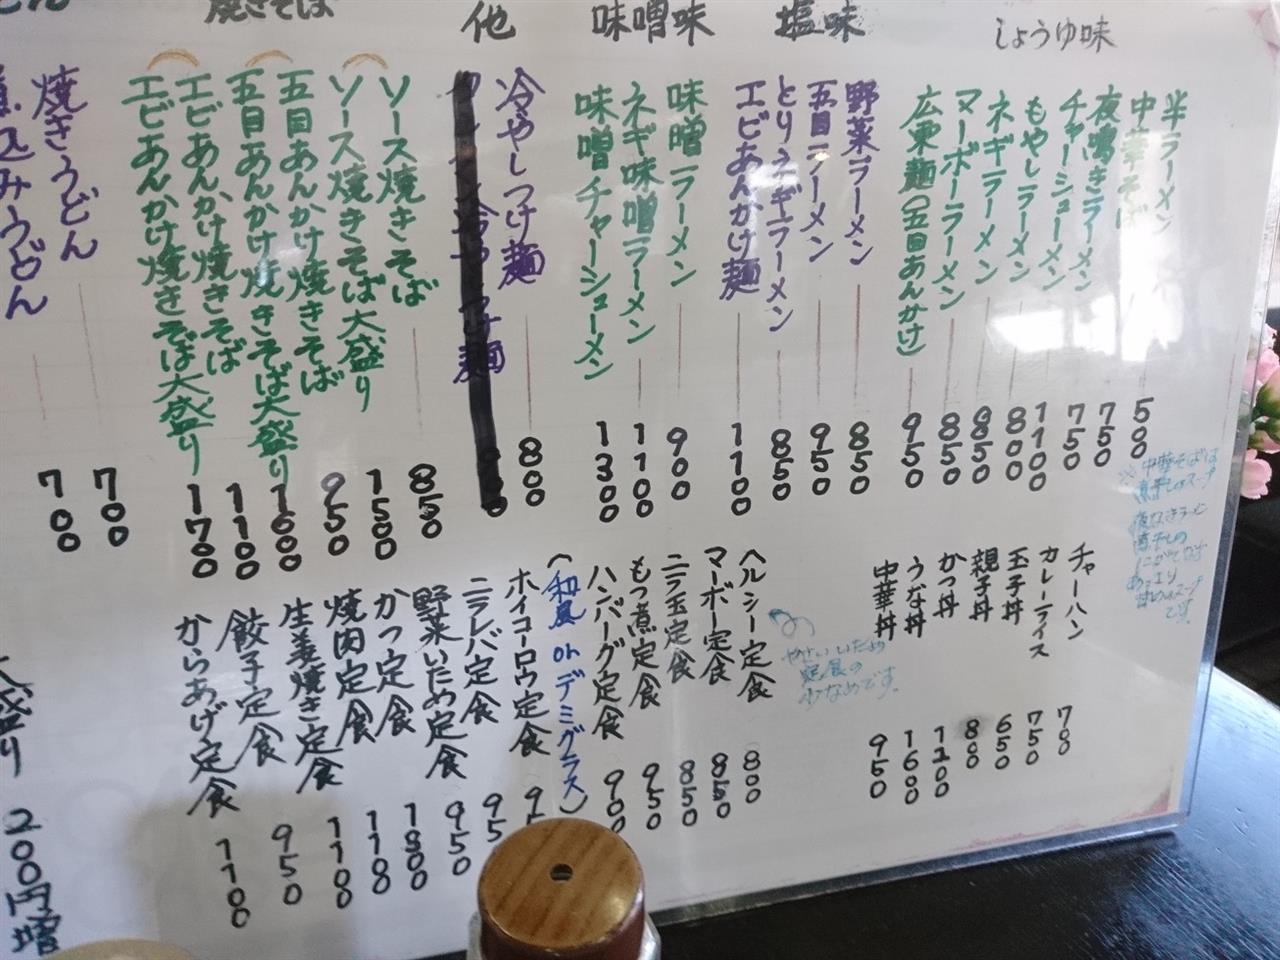 しょうゆ味
半ラーメン 500
中華そば 750
夜鳴きラーメン 750
チャーシューメン 1100
もやしラーメン 800
ネギラーメン 850
マーボーラーメン 850
広東麺(五目あんかけ) 950
※中華そばは
煮干しのスープ
夜なきラーメン
煮干しの
です。
塩味
野菜ラーメン 850
五目ラーメン 950
とりネギラーメン 850
エビあんかけ麺 1100
味噌味
味噌ラーメン 900
ネギ味噌ラーメン 1100
味噌チャーシューメン 1300
他
冷やしつけ麺 800
焼きそば
ソース焼きそば 850
ソース焼きそば大盛り 1500
五目あんかけ焼きそば 950
五目あんかけ焼きそば大盛り 1600
エビあんかけ焼きそば 1100
エビあんかけ焼きそば大盛り 1700
焼きうどん 700
煮込みうどん 700
チャーハン 700
カレーライス 750
玉子丼 650
親子丼 800
かつ丼 1200
うな丼 1600
中華丼 950
ヘルシー定食 800
やさいいため
定食の
少なめです。
マーボー定食 850
ニラ玉定食 850
もつ煮定食 950
ハンバーグ定食 900
(和風 or デミグラス)
ホイコーロウ定食
ニラレバ定食
野菜いため定食 950
かつ定食
焼肉定食
生姜焼き定食 1100
餃子定食 950
からあげ定食 1100
大盛り 200円増